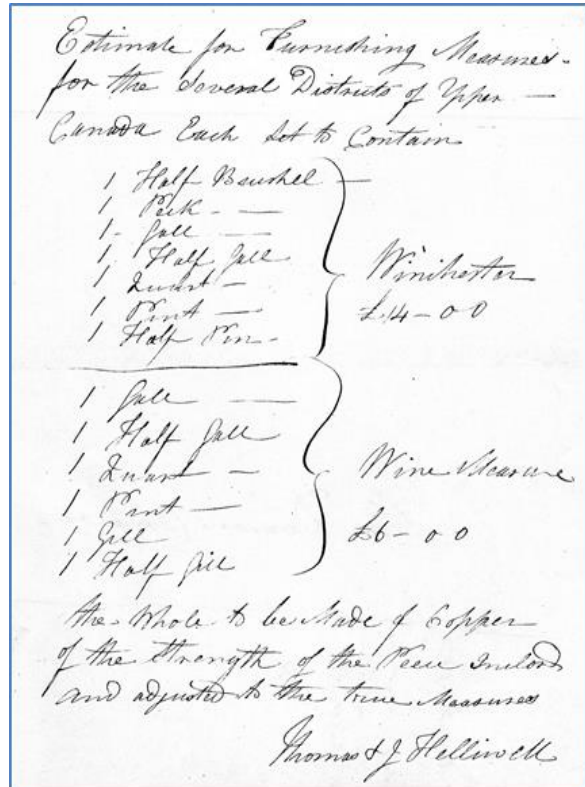 Estimate for Furnishing Measures
for the Several Districts of Upper —
Canada Each Set to Contain
1 Half Beushel —
1 Peck - —
1 - Gall —
1 Half Gall
1 Quart —
1 Pint —
1 Half Pin -
Winchester
£14 - 0 0
1 Gall —
1 Half Gall
1 Quart —
1 Pint —
1 Gill
1 Half Gill
Wine Measure
£6 - 0 0
the Whole to be Made of Copper
of the Strength of the Peece
and adjusted to the true Measures
Thomas & J Helliwell